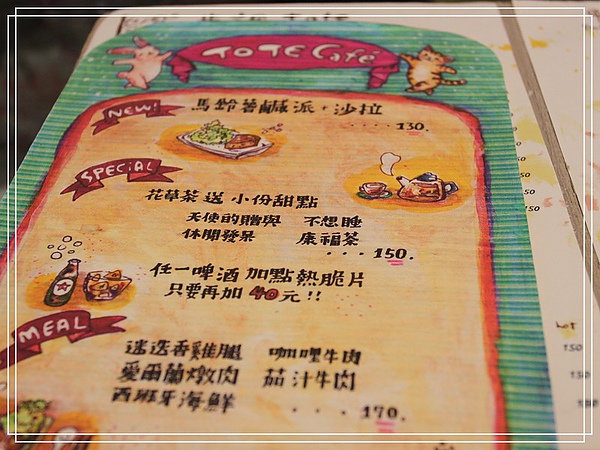 TOTE Café
NEW!
馬鈴薯鹹派+沙拉
....130.
SPECiAL
花草茶送小份甜點
天使的贈與 不想睡
休閒發呆 康福茶
...150.
任一啤酒加點熱脆片
只要再加40元!!
MEAL
迷迭香雞腿 咖哩牛肉
愛爾蘭燉肉 茄汁牛肉
西班牙海鮮
...170.
150
hot
150